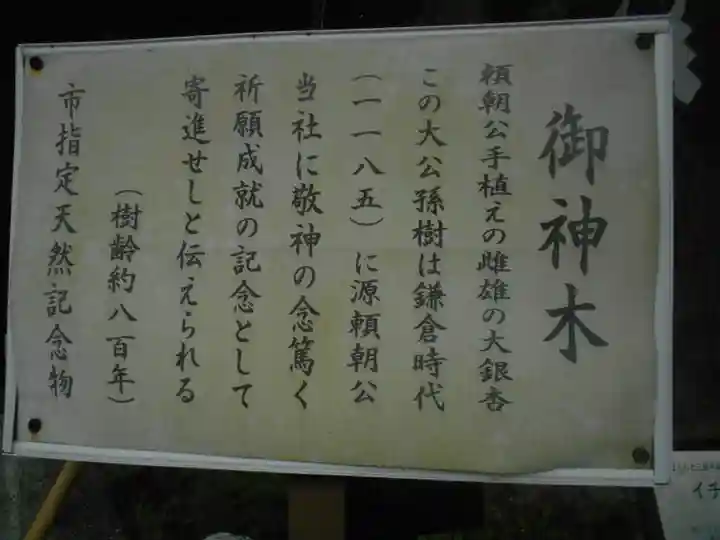 御神木
頼朝公手植えの雌雄の大銀杏
この大公孫樹は鎌倉時代
(一一八五)に源頼朝公
当社に敬神の念篤く
祈願成就の記念として
寄進せしと伝えられる
(樹齢約八百年)
市指定天然記念物